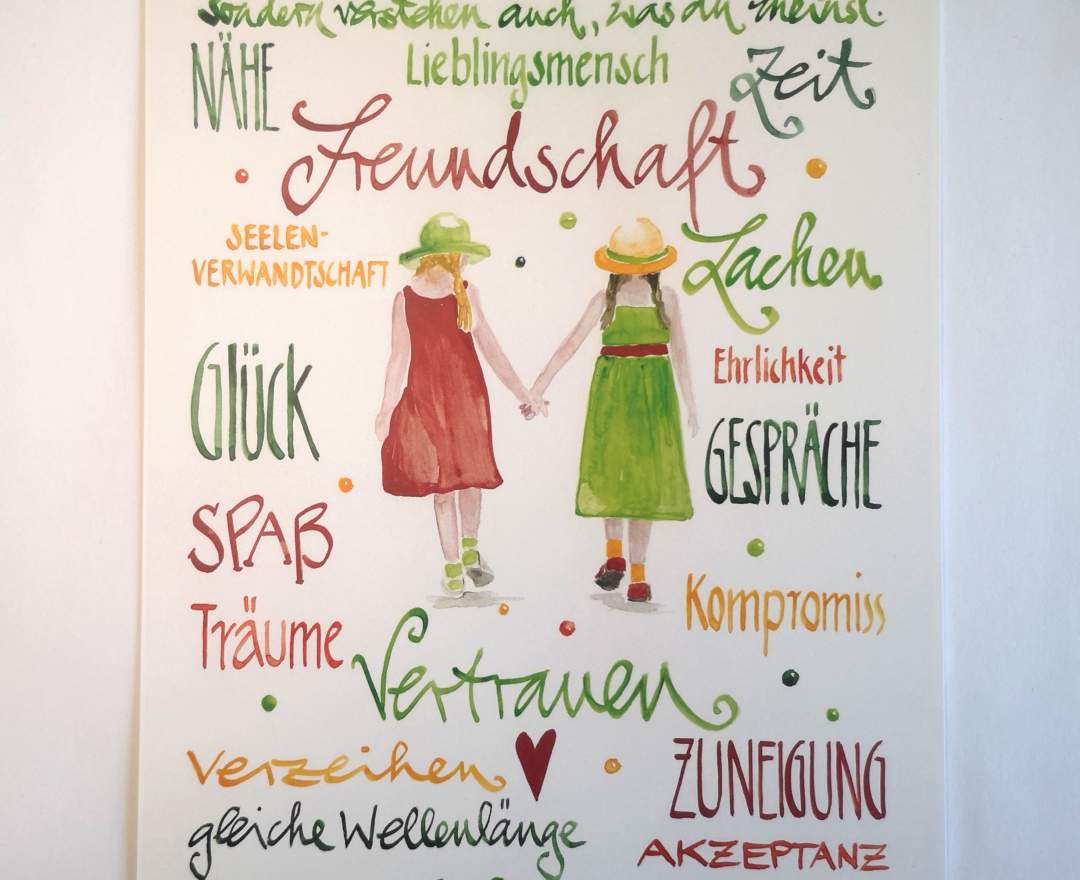 sondern verstehen auch, was du meinst.
NÄHE
Lieblingsmensch
Zeit
Freundschaft
SEELEN-
VERWANDTSCHAFT
Lachen
Ehrlichkeit
GLÜCK
GESPRÄCHE
SPAß
Kompromiss
Träume
Vertrauen
verzeihen
ZUNEIGUNG
gleiche Wellenlänge
AKZEPTANZ